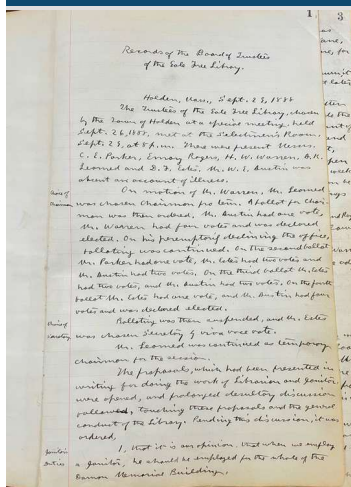 1.
3
Records of the Board of Trustees
of the Gale Free Library.
Holden, Mass., Sept. 28, 1888
The Trustees of the Gale Free Library, chosen
by the Town of Holden at a special meeting held
Sept. 26, 1887, met at the Selectmen's Room,
Sept. 28, at 8 p.m. There were present Messrs.
C. E. Parker, Emory Rogers, H. W. Warren, A. K.
Learned and D. F. Estes. Mr. W. E. Austin was
absent on account of illness.
Choice of
Chairman
On motion of Mr. Warren, Mr. Learned
was chosen Chairman pro tem. A ballot for Chair
man was then ordered, Mr. Austin had one vote,
Mr. Warren had four votes and was declared
elected. On his peremptorily declining the office,
balloting was continued. On the second ballot
Mr. Parker had one vote, Mr. Estes had two votes and
Mr. Austin had two votes. On the third ballot Mr. Estes
had two votes, and Mr. Austin had two votes. On the fourth
ballot Mr. Estes had one vote, and Mr. Austin had four
votes and was declared elected.
Choice of
Secretary
Balloting was then suspended, and Mr. Estes
was chosen Secretary by viva voce vote.
Mr. Learned was continued as temporary
chairman for the session.
The proposals, which had been presented in
writing for doing the work of Librarian and Janitor
were opened, and prolonged desultory discussion
followed, touching these proposals and the general
conduct of the Library. Pending this discussion, it was
ordered,
Janitor's
duties
1, that it is our opinion that when we employ
a janitor, he should be employed for the whole of the
Damon Memorial Building.